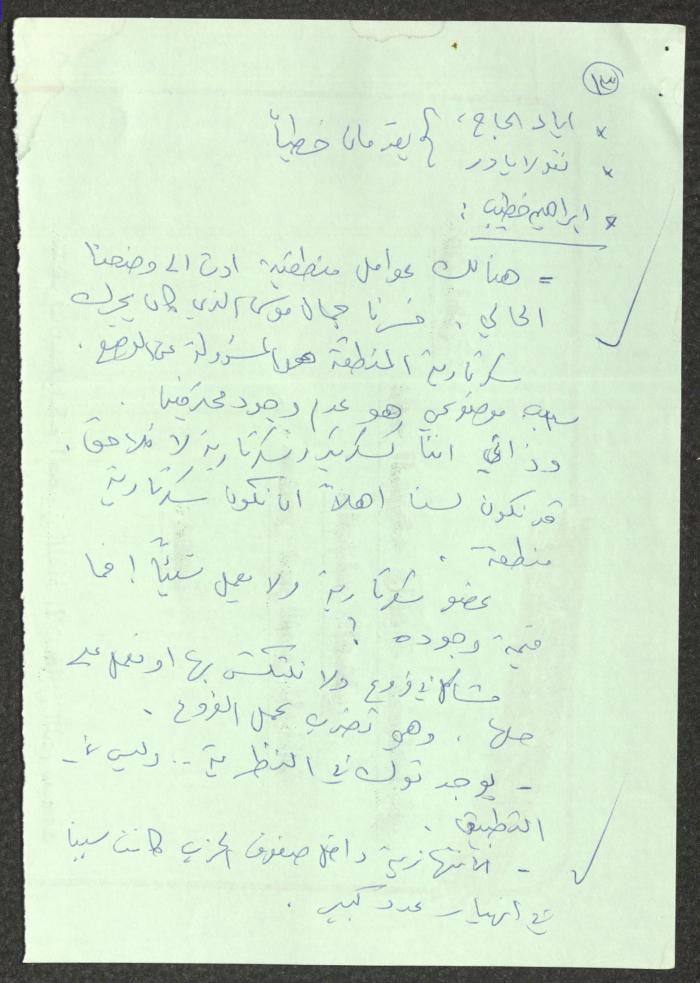 ١٣
* اياد الحاج، } يقدمان خطياً
* نقولا بادر
* ابراهيم خطيب :
= هنالك عوامل منطقية ادت الى وضعنا
الحالي . خسرنا جمال موسى الذي كان يحرك
سكرتارية المنطقة هو المسؤولة عن الوضع .
سبب موضوعي وهو عدم وجود محترفين .
وذاتي اننا كسكرتير وسكرتارية لا نلاحق .
قد نكون لسنا اهلاً ان نكون سكرتارية
منطقة .
عضو سكرتارية ولا يعمل شيئاً ! فما
قيمة وجوده ؟
مشاكل في فروع ولا نكتش بها او نعمل على
حلها . وهو تضرب عمل الفروع .
- يوجد في النظرية .. وليس في
التطبيق .
- الانتهازية داخل صفوف الحزب كانت سببا
في انهيار عدد كبير .